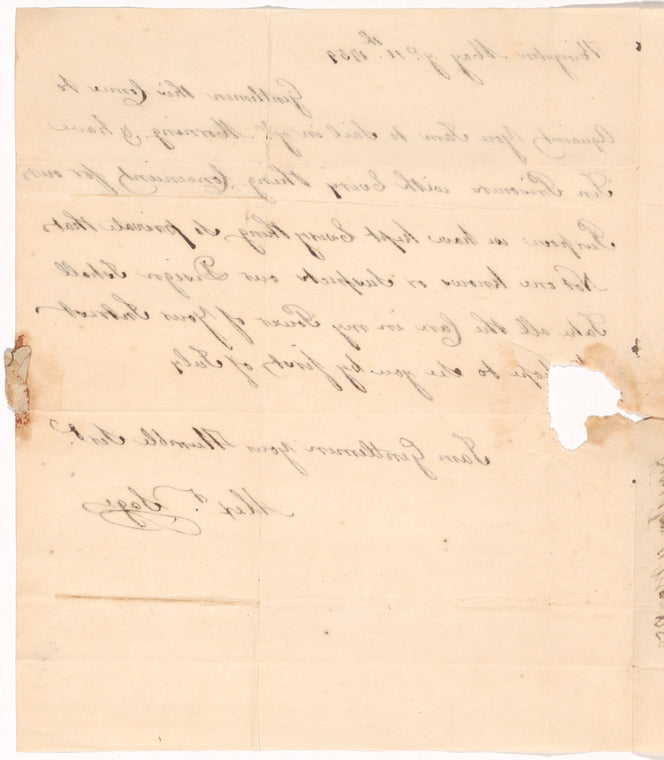 Kingston May ye. 11th. 1759
Gentlemen this Comes to
Aquaint you I am to Sail in ye. Morning, & have
Ten Prisoners with Every thing Convenient for our
Purpose we have kept Every thing So private that
Not one knows or Suspects our Design I shall
Take all the Care in my Power of Your Intrest
& hope to See you by first of July
I am Gentlemen your Humble Servt.
Alexr. Sage